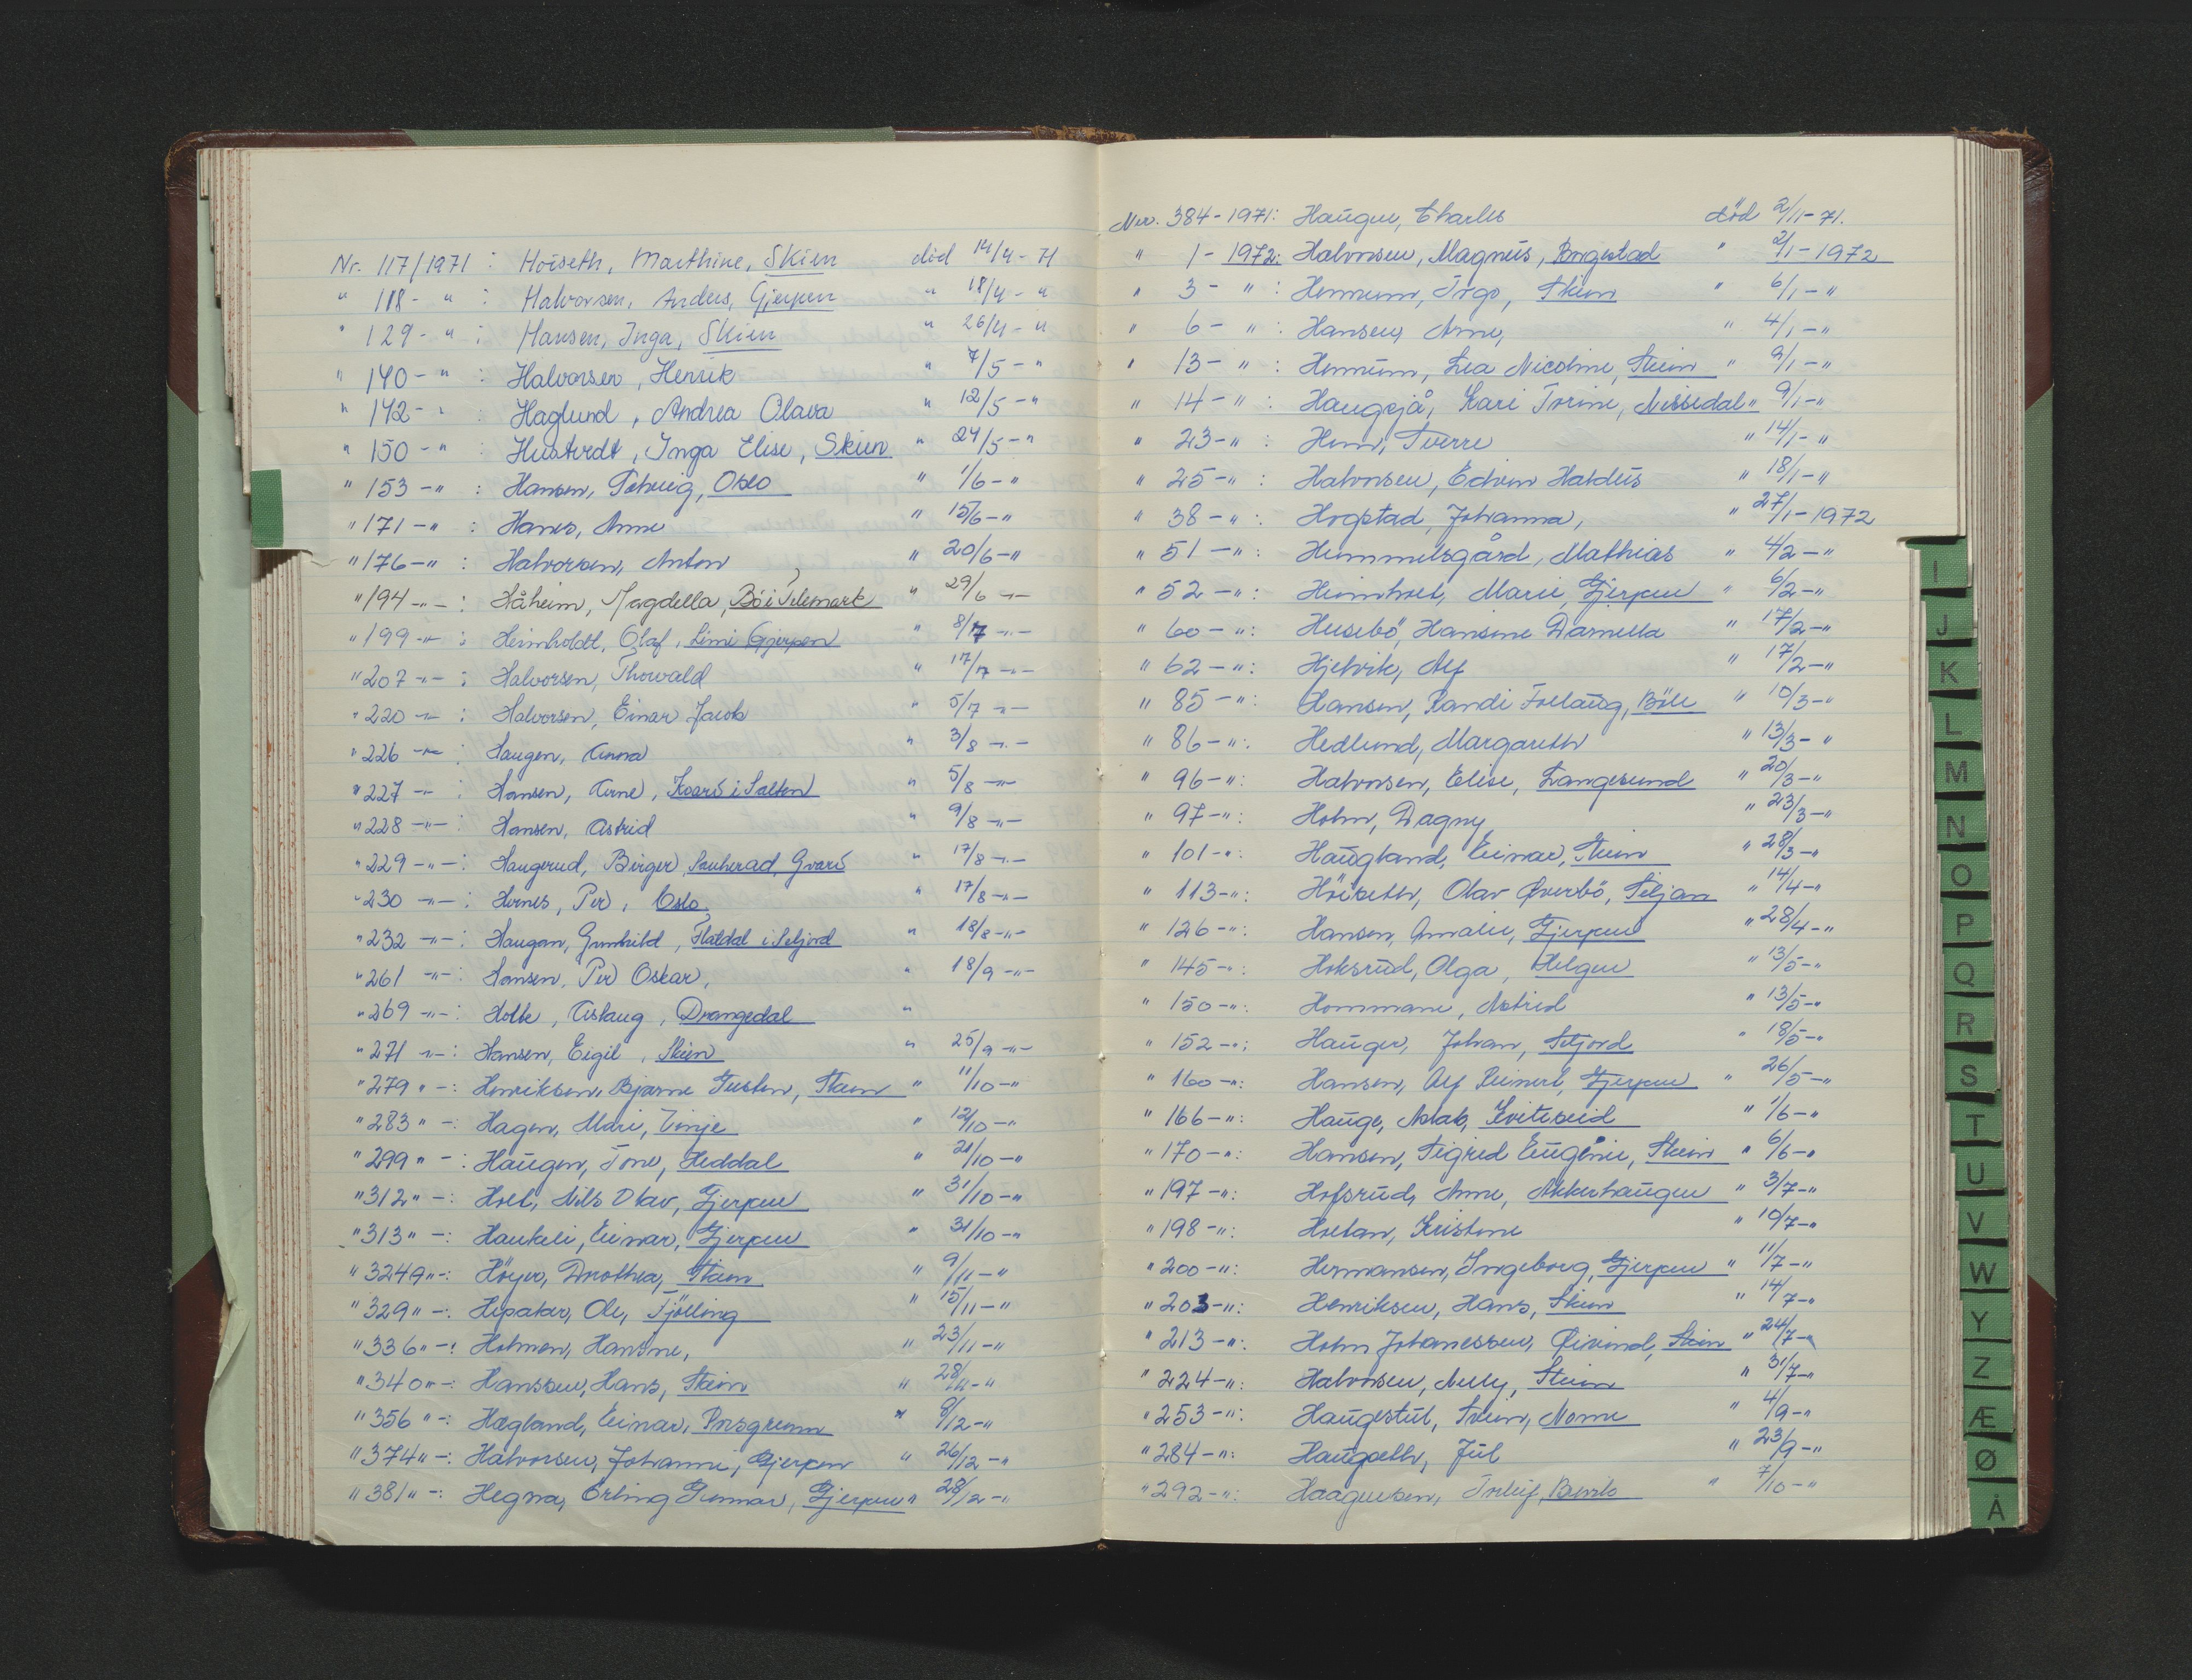 Nr. 117/1971 : Höiseth, Marthine, Skien död 14/4 - 71
" 118 - " : Halvorsen, Anders, Gjerpen " 18/4 - "
" 129 - " : Hansen, Inga, Skien " 26/4 - "
" 140 - " : Halvorsen, Henrik " 7/5 - "
" 142 - " : Haglund, Andrea Olava " 12/5 - "
" 150 - " : Hustvedt, Inga Elise, Skien " 24/5 - "
" 153 - " : Hansen, Solveig, Oslo " 1/6 - "
" 171 - " : Hanes, Anne " 15/6 - "
" 176 - " : Halvorsen, Anton " 20/6 - "
" 194 - " - : Håheim, Magdella, Bö i Telemark " 29/6 - " -
" 199 - " - : Heimholdt, Olaf, Limi Gjerpen " 8/7 - " -
" 207 - " - : Halvorsen, Thorvald " 17/7 - " -
" 220 - " - : Halvorsen, Einar Jacob " 5/7 - " -
" 226 - " - : Haugen, Anna " 3/8 - " -
" 227 - " - : Hansen, Arne, " 5/8 - " -
" 228 - " - : Hansen, Astrid " 9/8 - " -
" 229 - " - : Haugerud, Birger, Sauherad, Gvarv " 17/8 - " -
" 230 - " - : Hernes, Per, Oslo " 17/8 - " -
" 232 - " - : Haugan, Gunhild, Flatdal i Seljord " 18/8 - " -
" 261 - " - : Hansen, Per Oskar, " 18/9 - " -
" 269 - " - : Holte, Aslaug, Drangedal "
" 271 - " - : Hansen, Eigil, Skien " 25/9 - " -
" 279 " - : Henriksen, Bjarne Gusten, Skien " 11/10 - "
" 283 " - : Hagen, Mari, Vinje " 12/10 - "
" 299 " - : Haugen, Tone, Heddal " 21/10 - "
" 312 " - : Holt, Nils Olav, Gjerpen " 31/10 - "
" 313 " - : Haukeli, Einar, Gjerpen " 31/10 - "
" 324a " - : Höyer, Dorothea, Skien " 9/11 - "
" 329 " - : Ole, Tjölling " 15/11 - "
" 336 " - : Holmen, Hansine, " 23/11 - "
" 340 " - : Hanssen, Hans, Skien " 28/11 - "
" 356 " - : Hægland, Einar, Porsgrunn " 8/12 - "
" 374 " - : Halvorsen, Johanne, Gjerpen " 26/12 - "
" 381 " - : Hegna, Erling Gunnar, Gjerpen " 28/12 - "
Nr. 384 - 1971: Haugen, Charles död 2/11 - 71.
" 1 - 1972: Halvorsen, Magnus, Borgestad " 2/1 - 1972
" 3 - " : Hemmum, Skien " 6/1 - "
" 6 - " : Hansen, Arne, " 4/1 - "
" 13 - " : Hemmum, Lea Nicoline, Skien " 9/1 - "
" 14 - " : Haugsjå, Kari Torine, Nissedal " 9/1 - "
" 23 - " : Hem, Sverre " 14/1 - "
" 25 - " : Halvorsen, Edvin Haldus " 18/1 - "
" 38 - " : Hogstad, Johanna, " 27/1 - 1972
" 51 - " : Hummelsgård, Mathias " 4/2 - "
" 52 - " : Heimholt, Marie, Gjerpen " 6/2 - "
" 60 - " : Husebö, Hansine Damella " 17/2 - "
" 62 - " : Hjelvik, Alf " 17/2 - "
" 85 - " : Hansen, Randi Follaug, Böle " 10/3 - "
" 86 - " : Hedlund, Margareth " 13/3 - "
" 96 - " : Halvorsen, Elise, Langesund " 20/3 - "
" 97 - " : Holm, Dagny " 23/3 - "
" 101 - " : Haugland, Einar, Skien " 28/3 - "
" 113 - " : Höiseth, Olav Øverbö, Siljan " 14/4 - "
" 126 - " : Hansen, Amalie, Gjerpen " 28/4 - "
" 145 - " : Hoksrud, Olga, Helgen " 13/5 - "
" 150 - " : Hommane, Astrid " 13/5 - "
" 152 - " : Hauger, Johan, Seljord " 18/5 - "
" 160 - " : Hansen, Alf Reinert, Gjerpen " 26/5 - "
" 166 - " : Hauge, Aslak, Kviteseid " 1/6 - "
" 170 - " : Hansen, Sigrid Eugenie, Skien " 6/6 - "
" 197 - " : Hofsrud, Anne, Akkerhaugen " 3/7 - "
" 198 - " : Holtan, Kristine " 10/7 - "
" 200 - " : Hermansen, Ingeborg, Gjerpen " 11/7 - "
" 203 - " : Henriksen, Hans, Skien " 14/7 - "
" 213 - " : Holm Johanessen, Øivind, Skien " 24/7 - "
" 224 - " : Halvorsen, Nelly, Skien " 31/7 - "
" 253 - " : Haugestul, Svein, Nome " 4/9 - "
" 284 - " : Haugseth, Jul " 23/9 - "
" 292 - " : Haagensen, " 7/10 - "
I
J
K
L
M
N
O
P
Q
R
S
T
U
V
W
Y
Z
Æ
Ø
Å